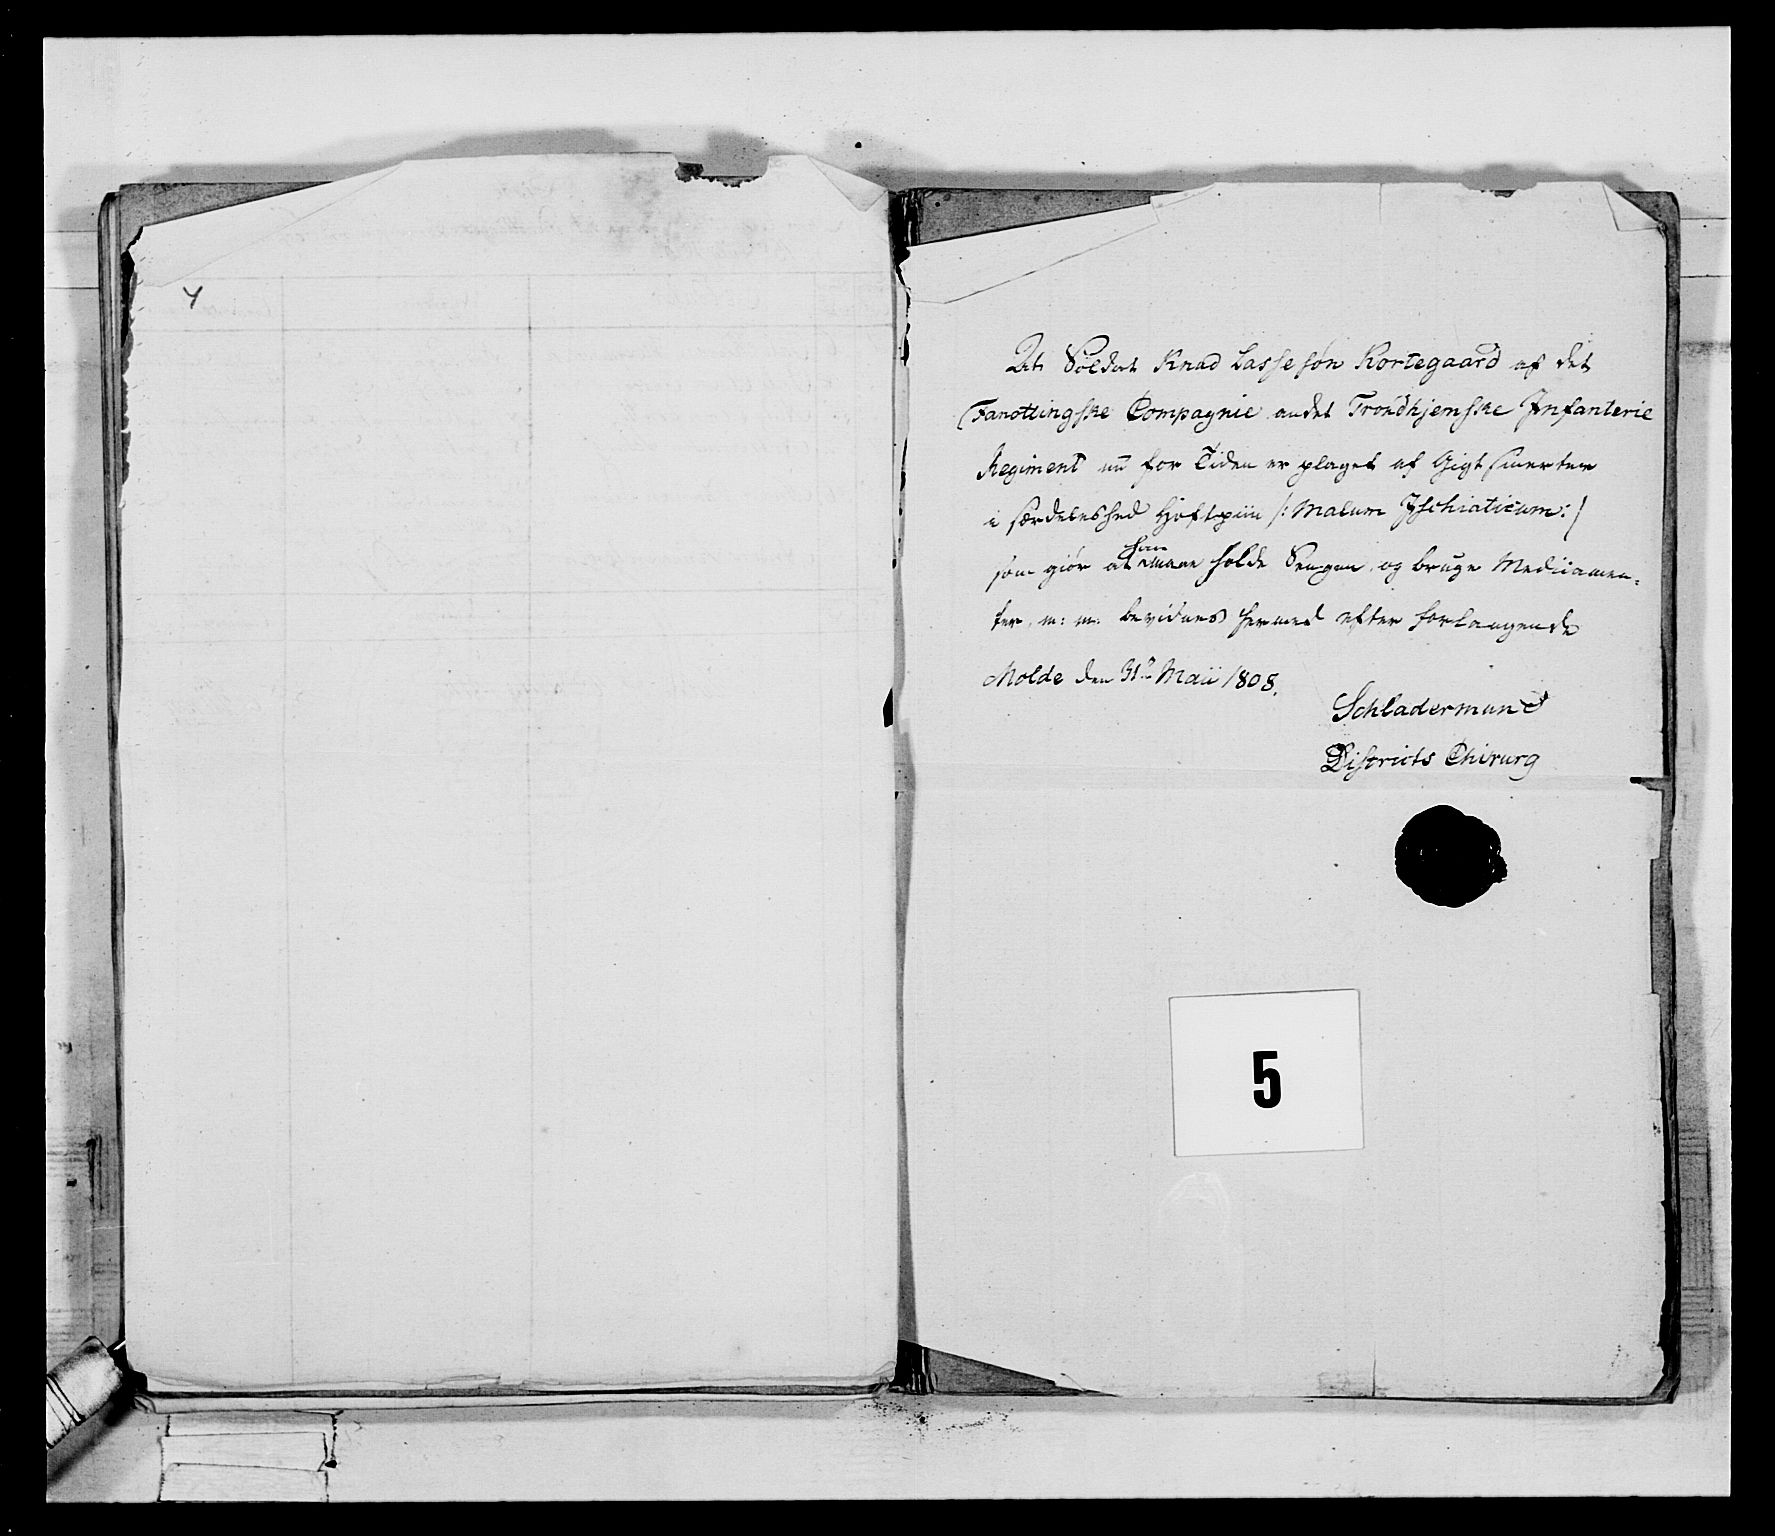 4
At Soldat Knud Lassesøn Kortegaard af det
Fanottingske Compagnie andet Trondhjemske Infanterie
Regiment nu for Tiden er plaget af Gigt smerter
i særdeleshed Hoftpiin /: Malum Ischiaticum :/
som giør at han maae holde Sengen og bruge Medicamen-
ter m: m: bevidnes hermed efter forlangende
Molde den 31te Maii 1808.
Schladermund
Districts Chirurg
5